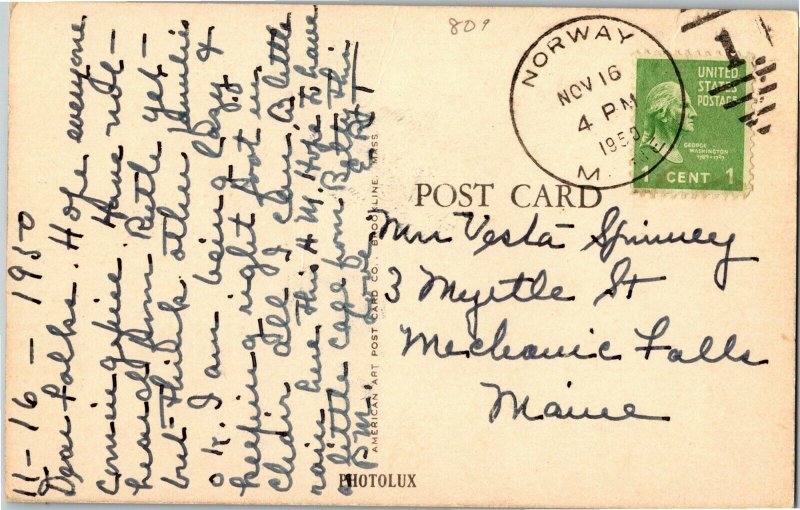 11-16-1950
Dear folks. Hope everyone
coming fine. Have not
heard from Ruth yet
but think other families
o k. I am being lazy &
keeping right foot in
chair all I can. A little
rain here this A M. Hope to have
a little cage from Betty this
P M. Love
809
NORWAY
NOV 16
4 PM
1950
M E
UNITED
STATES
POSTAGE
GEORGE
WASHINGTON
1789-1797
1 CENT 1
POST CARD
Mrs Vesta Spinney
3 Myrtle St
Mechanic Falls
Maine
AMERICAN ART POST CARD CO., BROOKLINE, MASS
PHOTOLUX